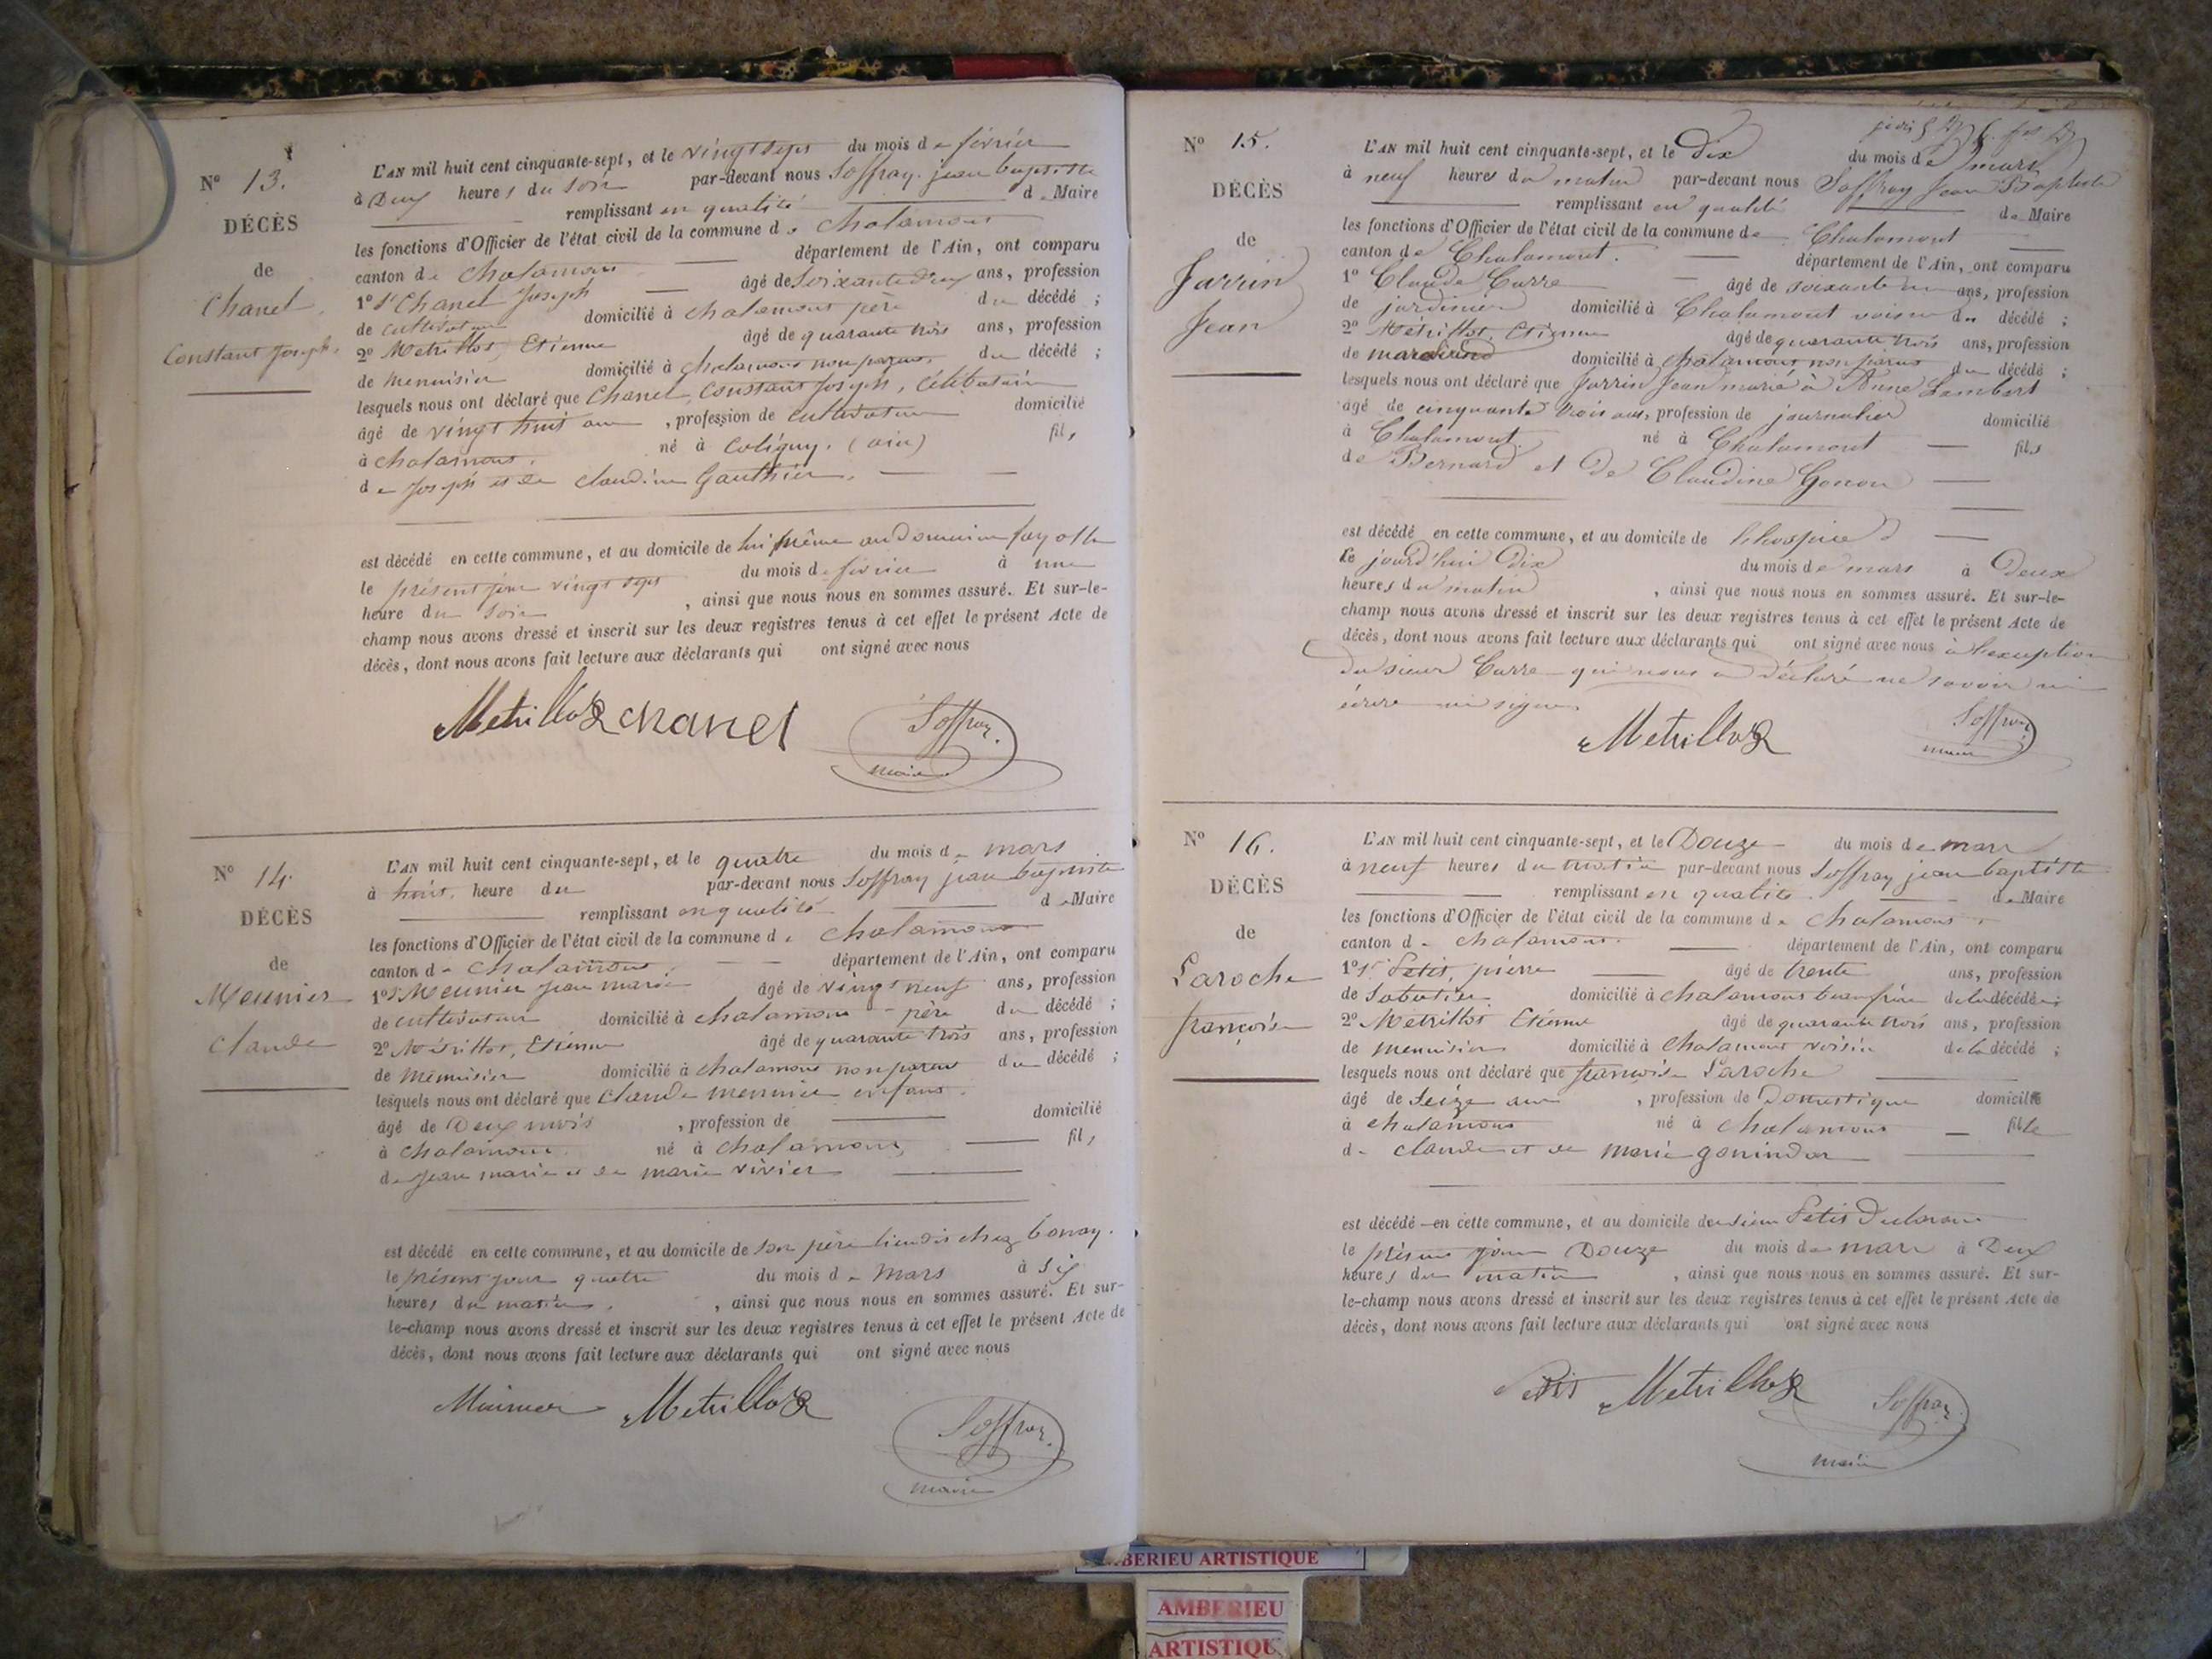 N° 13.
DÉCÈS
de
Chanel
Constant Joseph
L'AN mil huit cent cinquante-sept, et le vingt sept du mois de février
à Deux heures du soir par-devant nous Soffray jean baptiste
remplissant en qualité de Maire
les fonctions d'Officier de l'état civil de la commune de Chalamont
canton de Chalamont département de l'Ain, ont comparu
1° Sr Chanel Joseph âgé de Soixante deux ans, profession
de cultivateur domicilié à chalamont père du décédé ;
2° Metrillot, Etienne âgé de quarante trois ans, profession
de menuisier domicilié à chalamont non parent du décédé ;
lesquels nous ont déclaré que Chanel, Constant Joseph, célibataire
âgé de vingt huit ans , profession de cultivateur domicilié
à chalamont. né à Coligny. (ain) fils
de Joseph et de claudine Gauthier.
est décédé en cette commune, et au domicile de lui même au domaine fayolle
le présent jour vingt sept du mois de février à une
heure du soir , ainsi que nous nous en sommes assuré. Et sur-le-
champ nous avons dressé et inscrit sur les deux registres tenus à cet effet le présent Acte de
décès, dont nous avons fait lecture aux déclarants qui ont signé avec nous
Metrillot chanel Soffray
maire
N° 14.
DÉCÈS
de
Meunier
claude
L'AN mil huit cent cinquante-sept, et le quatre du mois de mars
à huit heure du par-devant nous Soffray jean baptiste
remplissant en qualité de Maire
les fonctions d'Officier de l'état civil de la commune de chalamont
canton de chalamont département de l'Ain, ont comparu
1° Sr Meunier jean marie âgé de vingt neuf ans, profession
de cultivateur domicilié à chalamont père du décédé ;
2° Métrillot, Etienne âgé de quarante trois ans, profession
de menuisier domicilié à chalamont non parent du décédé ;
lesquels nous ont déclaré que claude meunier enfant.
âgé de Deux mois , profession de domicilié
à chalamont né à chalamont, fils
de jean marie et de marie vivier
est décédé en cette commune, et au domicile de son père lieu dit chez bonray.
le présent jour quatre du mois de mars à six
heures du matin. , ainsi que nous nous en sommes assuré. Et sur-
le-champ nous avons dressé et inscrit sur les deux registres tenus à cet effet le présent Acte de
décès, dont nous avons fait lecture aux déclarants qui ont signé avec nous
Meunier Metrillot Soffray
maire
N° 15.
DÉCÈS
de
Jarrin
Jean
L'AN mil huit cent cinquante-sept, et le Dix du mois de mars
à neuf heures du matin par-devant nous Soffray Jean Baptiste
remplissant en qualité de Maire
les fonctions d'Officier de l'état civil de la commune de Chalamont
canton de Chalamont. département de l'Ain, ont comparu
1° Claude Carre âgé de soixante un ans, profession
de jardinier domicilié à Chalamont voisin du décédé ;
2° Métrillot, Etienne âgé de quarante trois ans, profession
de domicilié à chalamont non parent du décédé ;
lesquels nous ont déclaré que Jarrin Jean marié à Anne Lambert
âgé de cinquante trois ans, profession de journalier domicilié
à Chalamont. né à Chalamont fils
de Bernard et de Claudine Gonon
est décédé en cette commune, et au domicile de l'hospice
le jourd'hui Dix du mois de mars à Deux
heures du matin , ainsi que nous nous en sommes assuré. Et sur-le-
champ nous avons dressé et inscrit sur les deux registres tenus à cet effet le présent Acte de
décès, dont nous avons fait lecture aux déclarants qui ont signé avec nous à l'exception
du sieur Carre qui nous a déclaré ne savoir ni
écrire ni signer
Metrillot Soffray
maire
N° 16.
DÉCÈS
de
Laroche
françoise
L'AN mil huit cent cinquante-sept, et le Douze du mois de mars
à neuf heures du matin par-devant nous Soffray jean baptiste
remplissant en qualité de Maire
les fonctions d'Officier de l'état civil de la commune de Chalamont
canton de chalamont. département de l'Ain, ont comparu
1° Sr Petit, pierre âgé de trente ans, profession
de Sabotier domicilié à chalamont beau frère de la décédée ;
2° Metrillot Etienne âgé de quarante trois ans, profession
de menuisier domicilié à Chalamont voisin de la décédé ;
lesquels nous ont déclaré que françoise Laroche
âgé de Seize ans , profession de Domestique domicilié
à chalamont né à chalamont fille
de claude et de marie gonindar
est décédé en cette commune, et au domicile du sieur Petit Déclarant
le présent jour Douze du mois de mars à Deux
heures du matin , ainsi que nous nous en sommes assuré. Et sur-
le-champ nous avons dressé et inscrit sur les deux registres tenus à cet effet le présent Acte de
décès, dont nous avons fait lecture aux déclarants qui ont signé avec nous
Petit Metrillot Soffray
maire
BERIEU ARTISTIQUE
AMBERIEU
ARTISTIQU